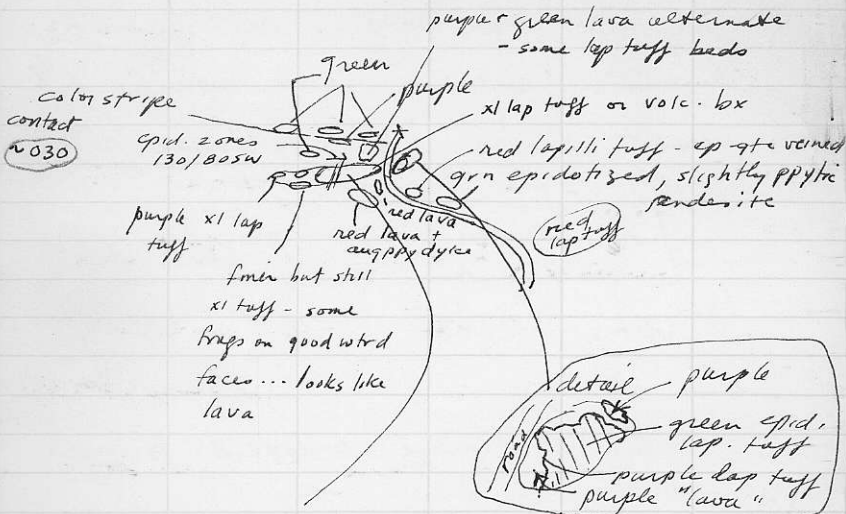 purple + green lava alternate
- some lap tuff beds
green
purple
color stripe
contact
~ 030
xl lap tuff or volc. bx
epid. zones
130/80SW
red lapilli tuff - ep-qtz veined
grn epidotized, slightly ppytic
andesite
purple xl lap
tuff
red lava
red lava +
augppy dyke
red
lap tuff
finer but still
xl tuff - some
frags on good wtrd
faces... looks like
lava
detail
purple
road
green epid.
lap. tuff
purple lap tuff
purple "lava"